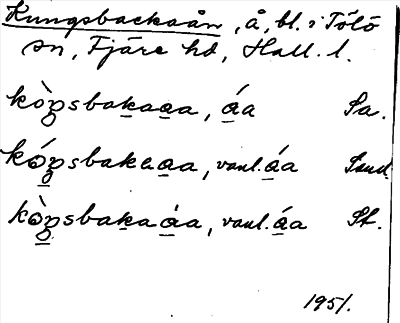 Kungsbackaån, å, bl. i Tölö
sn, Fjäre hd, Hall. l.
kòŋsbakaaa, áa Sa.
kóŋsbakaaa, vanl. áa Sand.
kòŋsbakaáa, vanl. áa St.
1951.